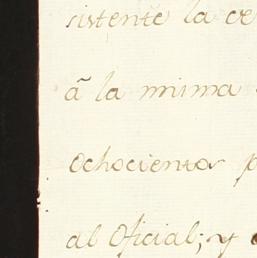 sistente la ce
â la mima
ochocientos p
al Oficial; y